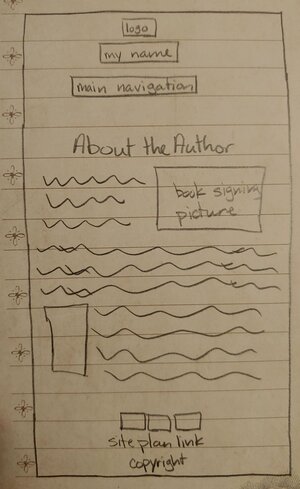 logo
my name
main navigation
About the Author
book signing
picture
site plan link
copyright